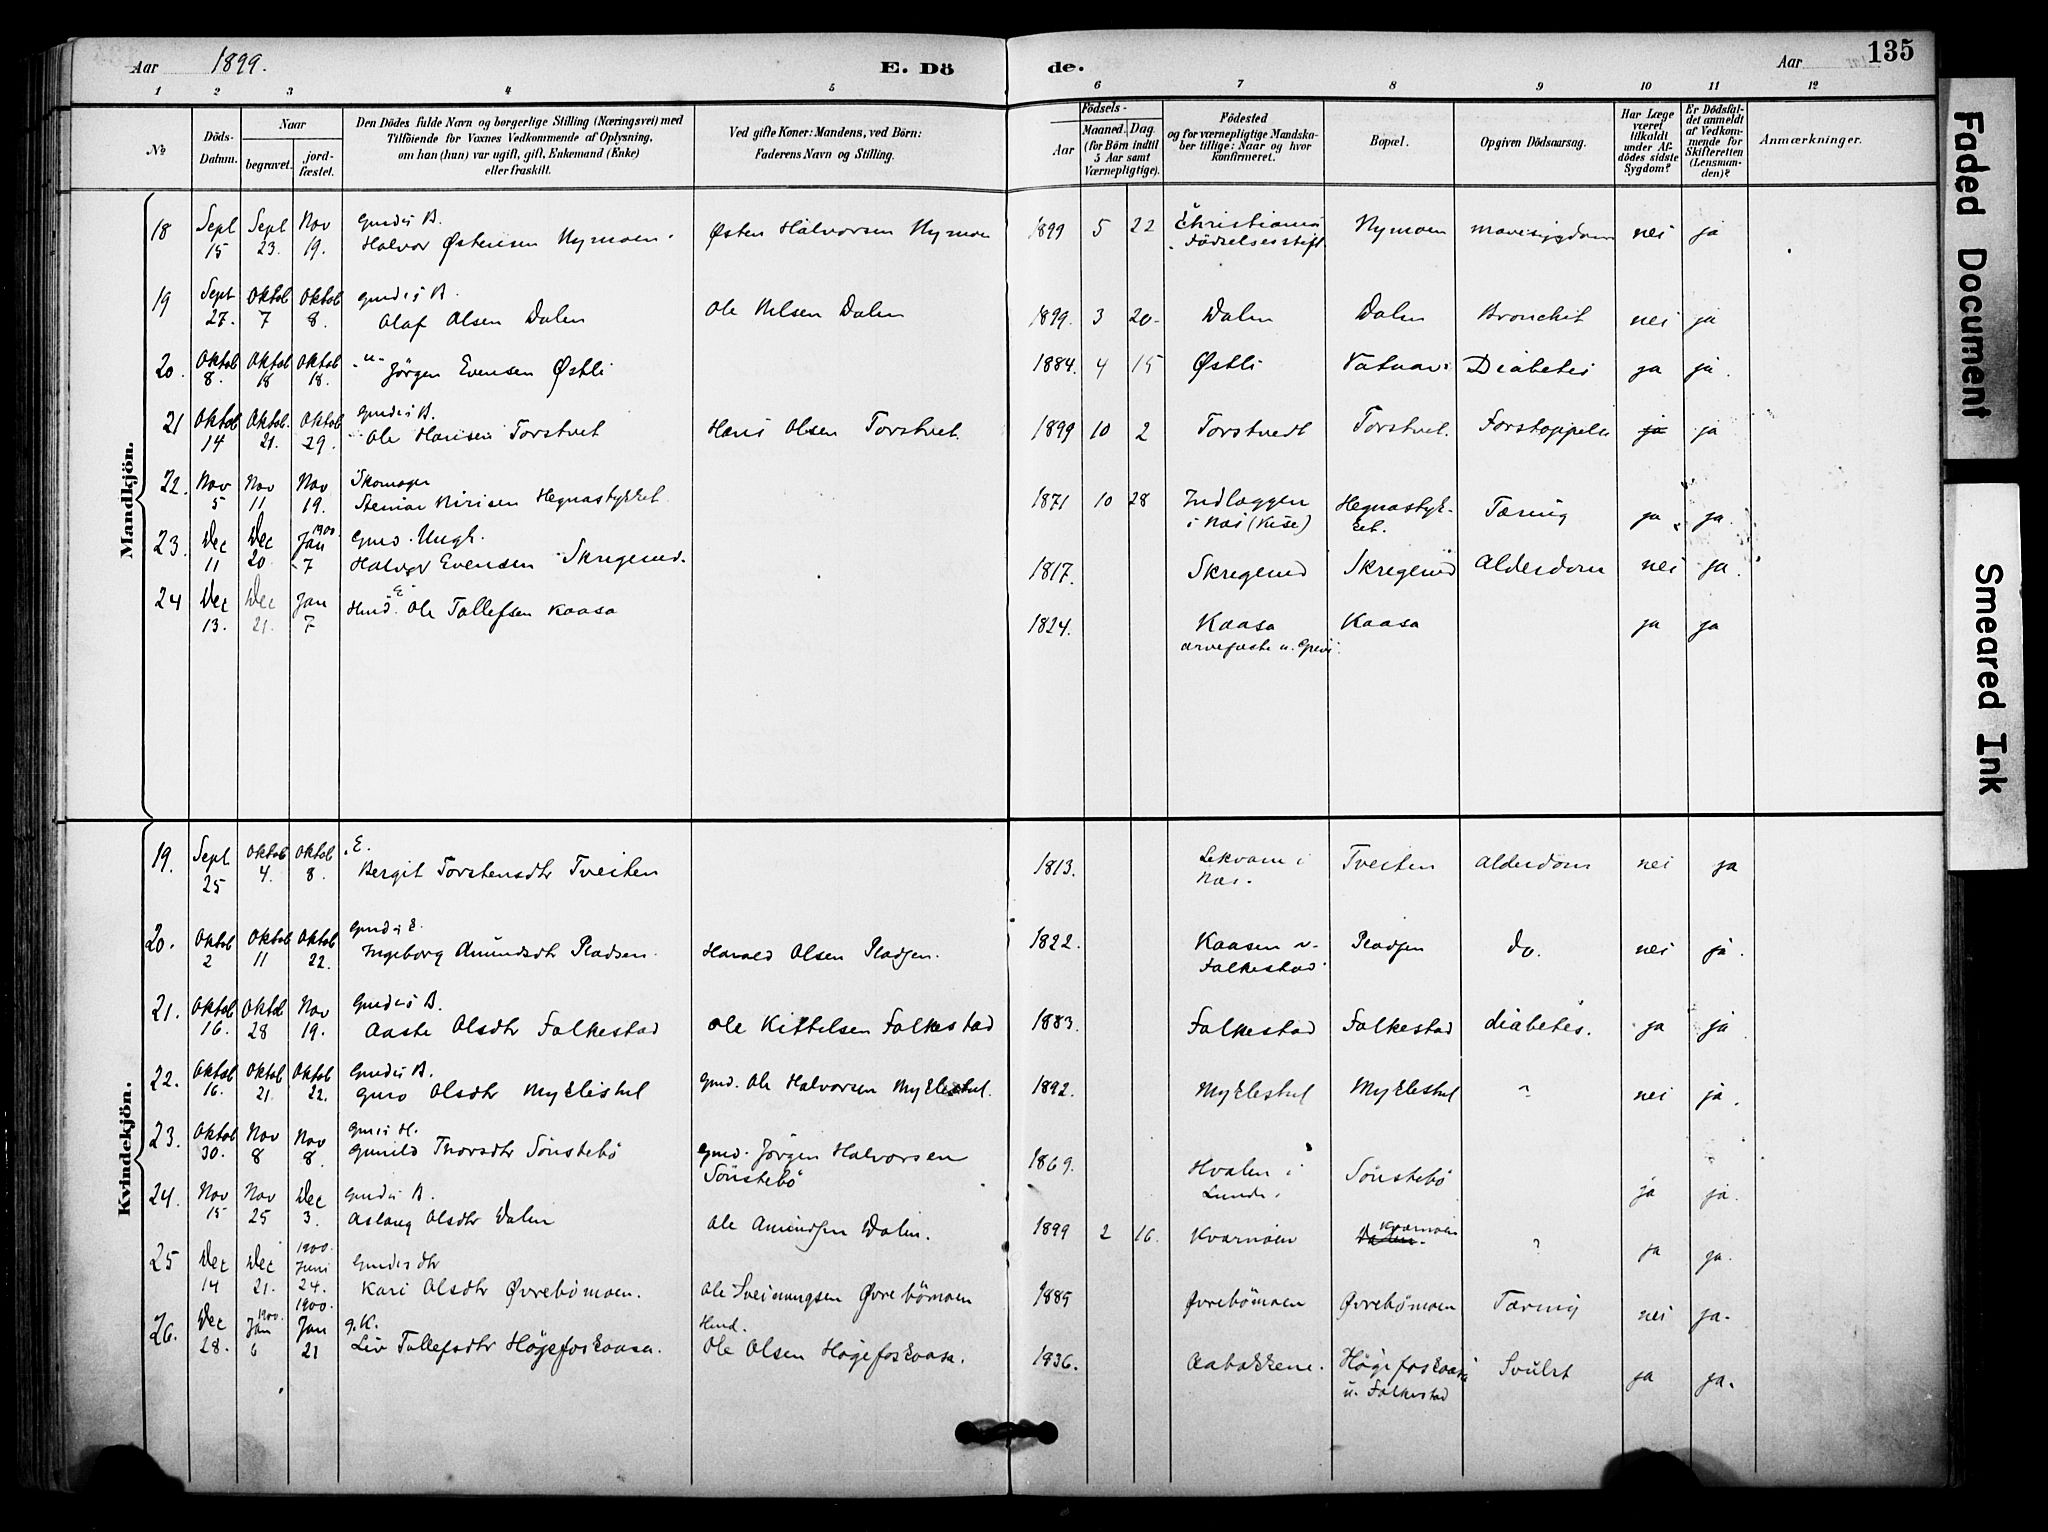 Aar 1899.
E. Döde.
Aar
135
1 2 3 4 5 6 7 8 9 10 11 12
No
Döds-Datum.
Naar
begravet.
jord-fæstet.
Den Dödes fulde Navn og borgerlige Stilling (Næringsvei) med
Tilföiende for Voxnes Vedkommende af Oplysning,
om han (hun) var ugift, gift, Enkemand (Enke)
eller fraskilt.
Ved gifte Koner: Mandens, ved Börn:
Faderens Navn og Stilling.
Födsels-
Aar
Maaned. Dag
(for Börn indtil
5 Aar samt
Værnepligtige).
Födested
og for værnepligtige Mandska-
ber tillige: Naar og hvor
konfirmeret.
Bopæl.
Opgiven Dödsaarsag.
Har Læge
været
tilkaldt
under Af-
dödes sidste
Sygdom?
Er Dödsfal-
det anmeldt
af Vedkom-
mende for
Skifteretten
(Lensman-
den)?
Anmærkninger.
Mandkjön.
18 Sept 15 Sept 23. Nov 19. Gmds B. Halvor Østensen Nymoen. Østen Halvorsen Nymoen 1899 5 22 Christiania Födselsstift Nymoen mavesygdom nei ja
19 Sept 27. Oktob 7 Oktob 8. gmds B. Olaf Olsen Dalen Ole Nilsen Dalen 1899. 3 20. Dalen Dalen Bronchit nei ja
20. Oktob 8. Oktob 18 Oktob 18. -"- Jörgen Evensen Østli 1884. 4 15 Østli Diabetes ja ja.
21 Oktob 14 Oktob. 21. Oktob 29. gmds B. Ole Hansen Torstvet Hans Olsen Torstvet. 1899 10 2 Torstvedt Torstvet. Forstoppelse ja ja
22. Nov 5 Nov 11 Nov 19. Skomager Steinar Hegnastykket 1871 10 28 Indlaggen i Næs (Kise) Hegnastyk-ket. Tæring ja ja.
23. Dec 11 Dec 20 1900. Jan 7 Gmd. Ungk. Halvor Evensen Skregelid. 1817. Skregelid Skregelid Alderdom nei ja.
24 Dec 13. Dec 21. Jan 7 Hmd. E Ole Tollefsen Kaasa 1824. Kaasa Kaasa ja ja
Kvindekjön.
19. Sept 25 Oktob 4. Oktob 8. E. Bergit Torstensdtr Tveiten 1813. Lekvam i Næs. Tveiten Alderdom nei ja
20. Oktob 2 Oktob 11 Oktob 22. gmds E. Ingeborg Amundsdtr Pladsen. Harald Olsen Pladsen. 1822. Kaasen u. Falkestad. Pladsen Do. nei ja.
21. Oktob 16. Oktob 28 Nov 19. gmds B. Aaste Olsdtr Falkestad Ole Kittelsen Falkestad 1883. Falkestad Falkestad diabetes. ja ja
22. Oktob 16. Oktob 21. Oktob 22. Gmds B. Guro Olsdtr Myklestul gmd. Ole Halvorsen Myklestul. 1892. Myklestul Myklestul ? nei ja.
23. Oktob 30. Nov 8 Nov 8. gmds H. Gunild Thorsdtr Sönstebö gmd. Jörgen Halvorsen Sönstebö 1869. Hvalen i Lunde. Sönstebö ja ja.
24. Nov 15 Nov 25 Dec 3. gmds B. Aslaug Olsdtr Dalen Ole Amundsen Dalen. 1899 2 16. Kvarnoen Dalen. Kvarnoen ? ja ja.
25 Dec 14 Dec 21. 1900. Juni 24. Gmds dtr Kari Olsdtr Øvrebömoen. Ole Sveinungsen Øvrebömoen 1885 Øvrebömoen Øvrebömoen Tæring nei ja.
26. Dec 28. 1900. Jan 6 1900. Jan 21 g.K. Liv Tollefsdtr Högefoskaasa. Hmd. Ole Olsen Högefoskaasa. 1836. Aabakkene. Högefoskaasa u. Falkestad Svulst ja ja.
Faded Document
Smeared Ink